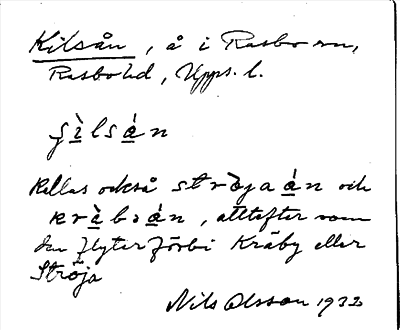 Kilsån, å i Rasbo sn,
Rasbo hd, Upps. l.
ʃìlsán
Kallas också strøjaán och
kràbián, alltefter som
den flyter förbi Kräby eller
Ströja
Nils Olsson 1932